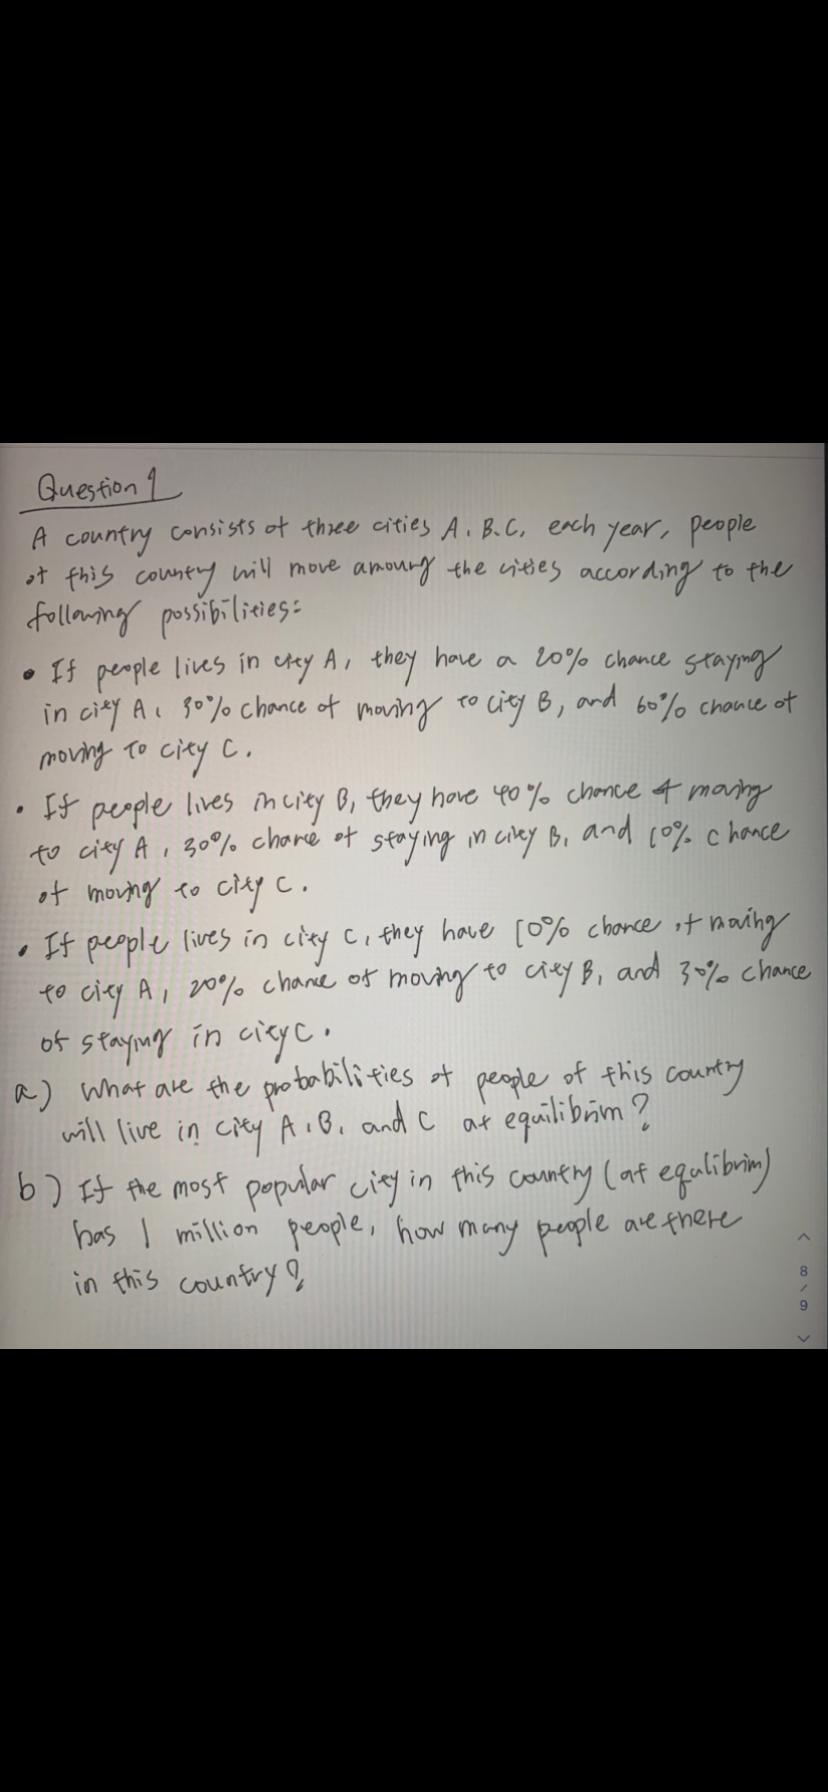 Question 1
A country consists of three cities A, B, C, each year, people
of this country will move amoung the cities according to the
following possibilities:
• If people lives in city A, they have a 20% chance staying
in city A, 30% chance of moving to city B, and 60% chance of
moving to city C.
• If people lives in city B, they have 40% chance of moving
to city A, 30% chance of staying in city B, and 10% chance
of moving to city C.
• If people lives in city C, they have 10% chance of moving
to city A, 20% chance of moving to city B, and 30% chance
of staying in city C.
a) What are the probabilities of people of this country
will live in city A, B, and C at equilibrim?
b) If the most popular city in this country (at equlibrim)
has 1 million people, how many people are there
in this country?
8
/
9